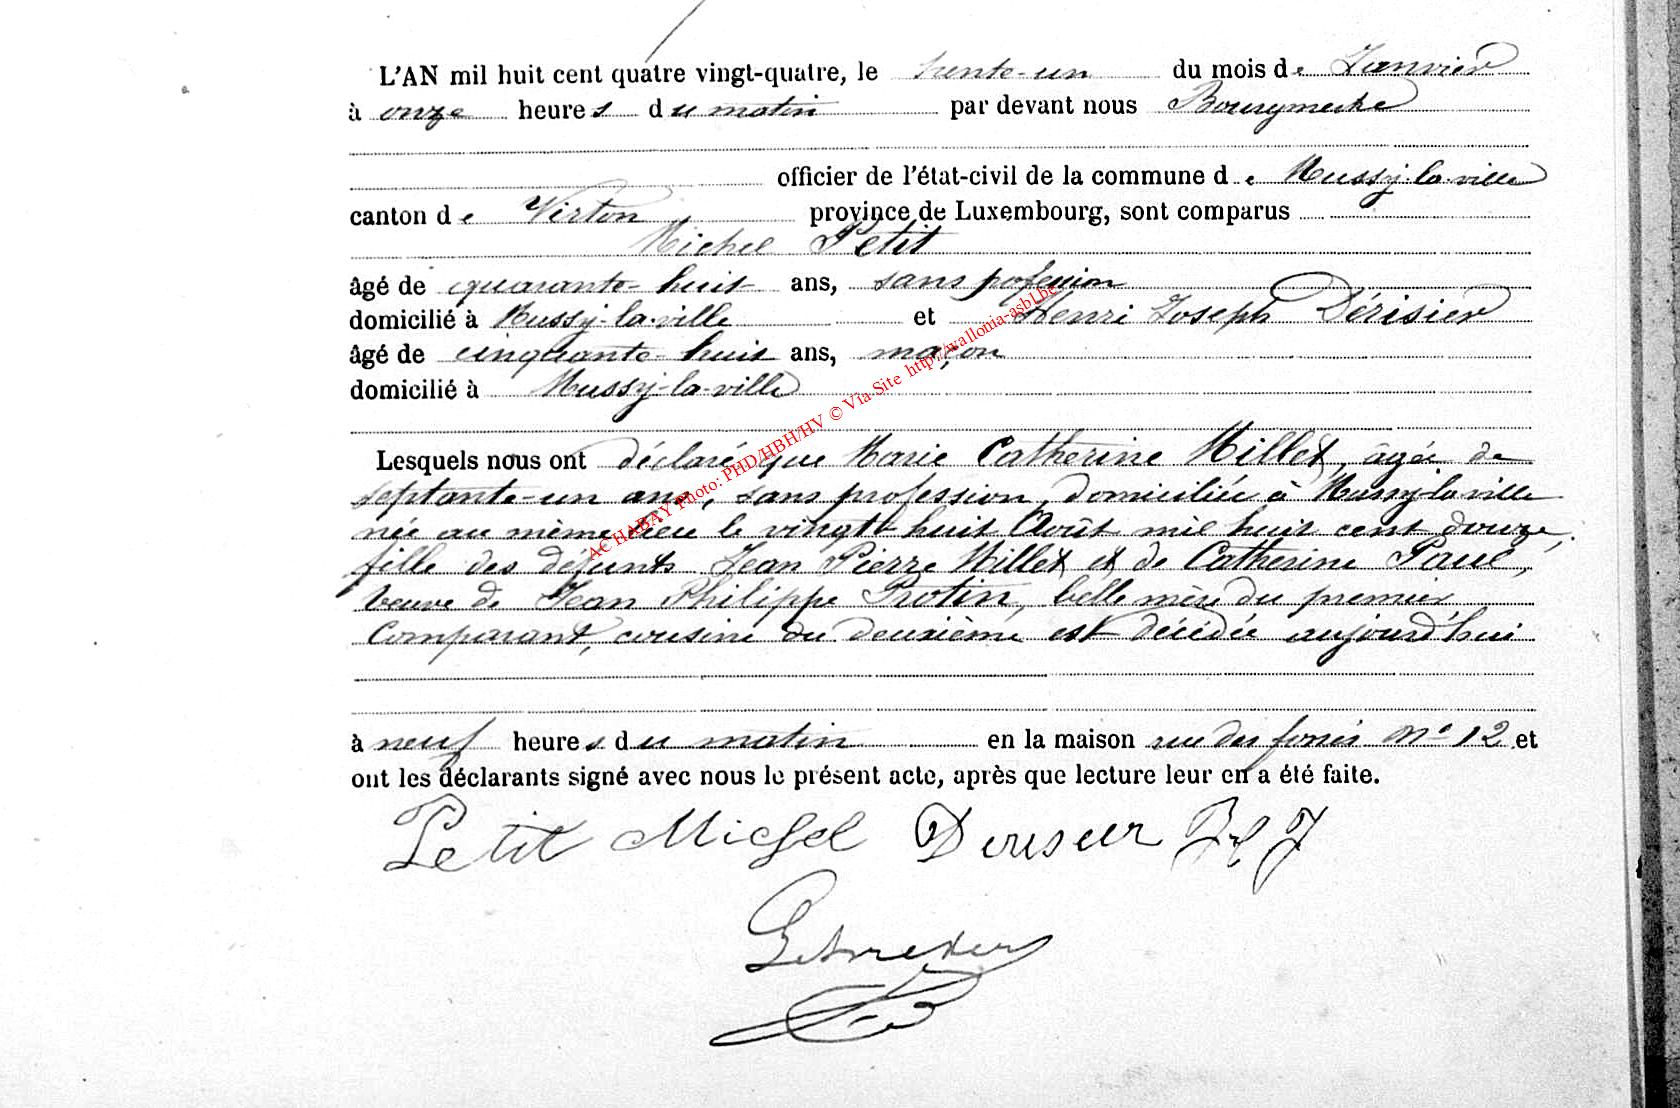 L'AN mil huit cent quatre vingt-quatre, le trente-un du mois de Janvier
à onze heures du matin par devant nous
officier de l'état-civil de la commune de Mussy-la-ville
canton de Virton province de Luxembourg, sont comparus
Michel Petit
âgé de quarante-huit ans, sans profession
domicilié à Mussy-la-ville et Henri Joseph Dérisier
âgé de cinquante-huit ans, maçon
domicilié à Mussy-la-ville
Lesquels nous ont déclaré que Marie Catherine Millet, âgée de
septante-un ans, sans profession, domiciliée à Mussy-la-ville
née au même lieu le vingt-huit Août mil huit cent douze,
fille des défunts Jean Pierre Millet et de Catherine
veuve de Jean Philippe Protin, belle mère du premier
Comparant, cousine du deuxième est décédée aujourd'hui
à neuf heures du matin en la maison rue des No 12 et
ont les déclarants signé avec nous le présent acte, après que lecture leur en a été faite.
Petit Michel
AC HABAY Photo: PHD/HBH/HV © Via Site http://wallonia-asbl.be